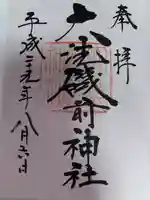 奉拝
大洗磯前神社
平成二十九年八月六日